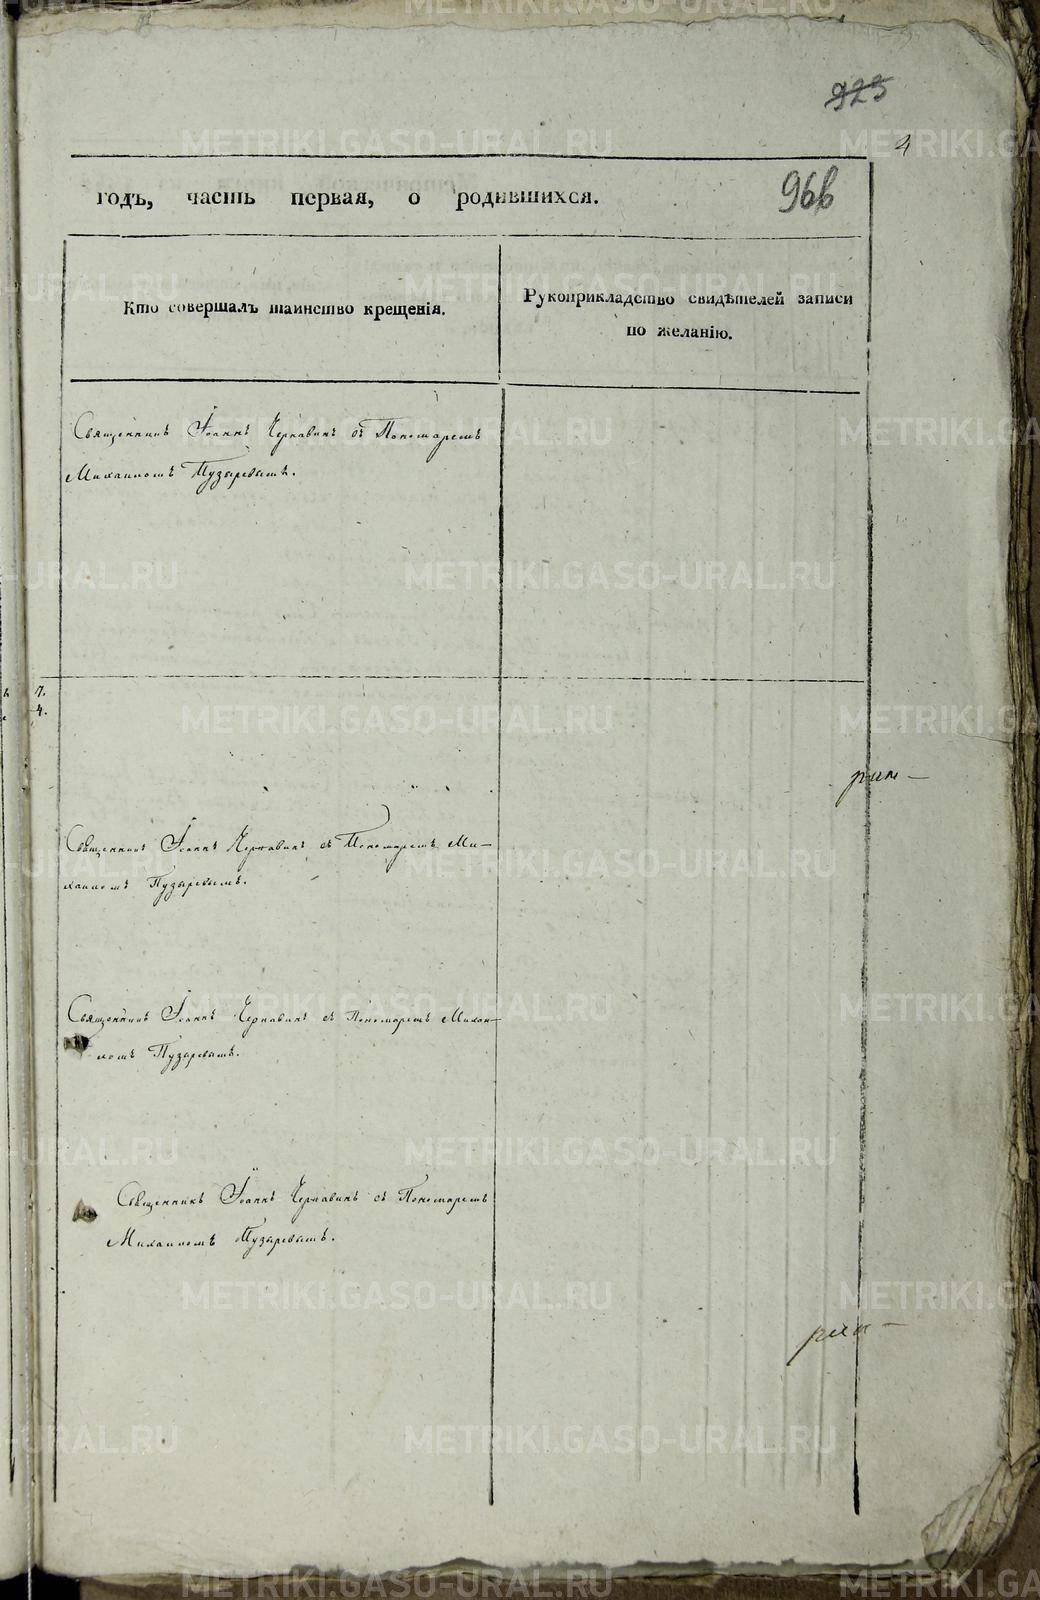 925
4
966
годъ, часть первая, о родившихся.
Кто совершалъ таинство крещенія.
Рукоприкладство свидѣтелей записи
по желанію.
Священникъ Іоаннъ Чернавинъ съ Пономаремъ
Михаиломъ Пузыревымъ.
7.
4.
Священникъ Іоаннъ Чернавинъ съ Пономаремъ Ми-
хаиломъ Пузыревымъ.
Священникъ Іоаннъ Чернавинъ съ Пономаремъ Михаи-
ломъ Пузыревымъ.
Священникъ Іоаннъ Чернавинъ съ Пономаремъ
Михаиломъ Пузыревымъ.
METRIKI.GASO-URAL.RU